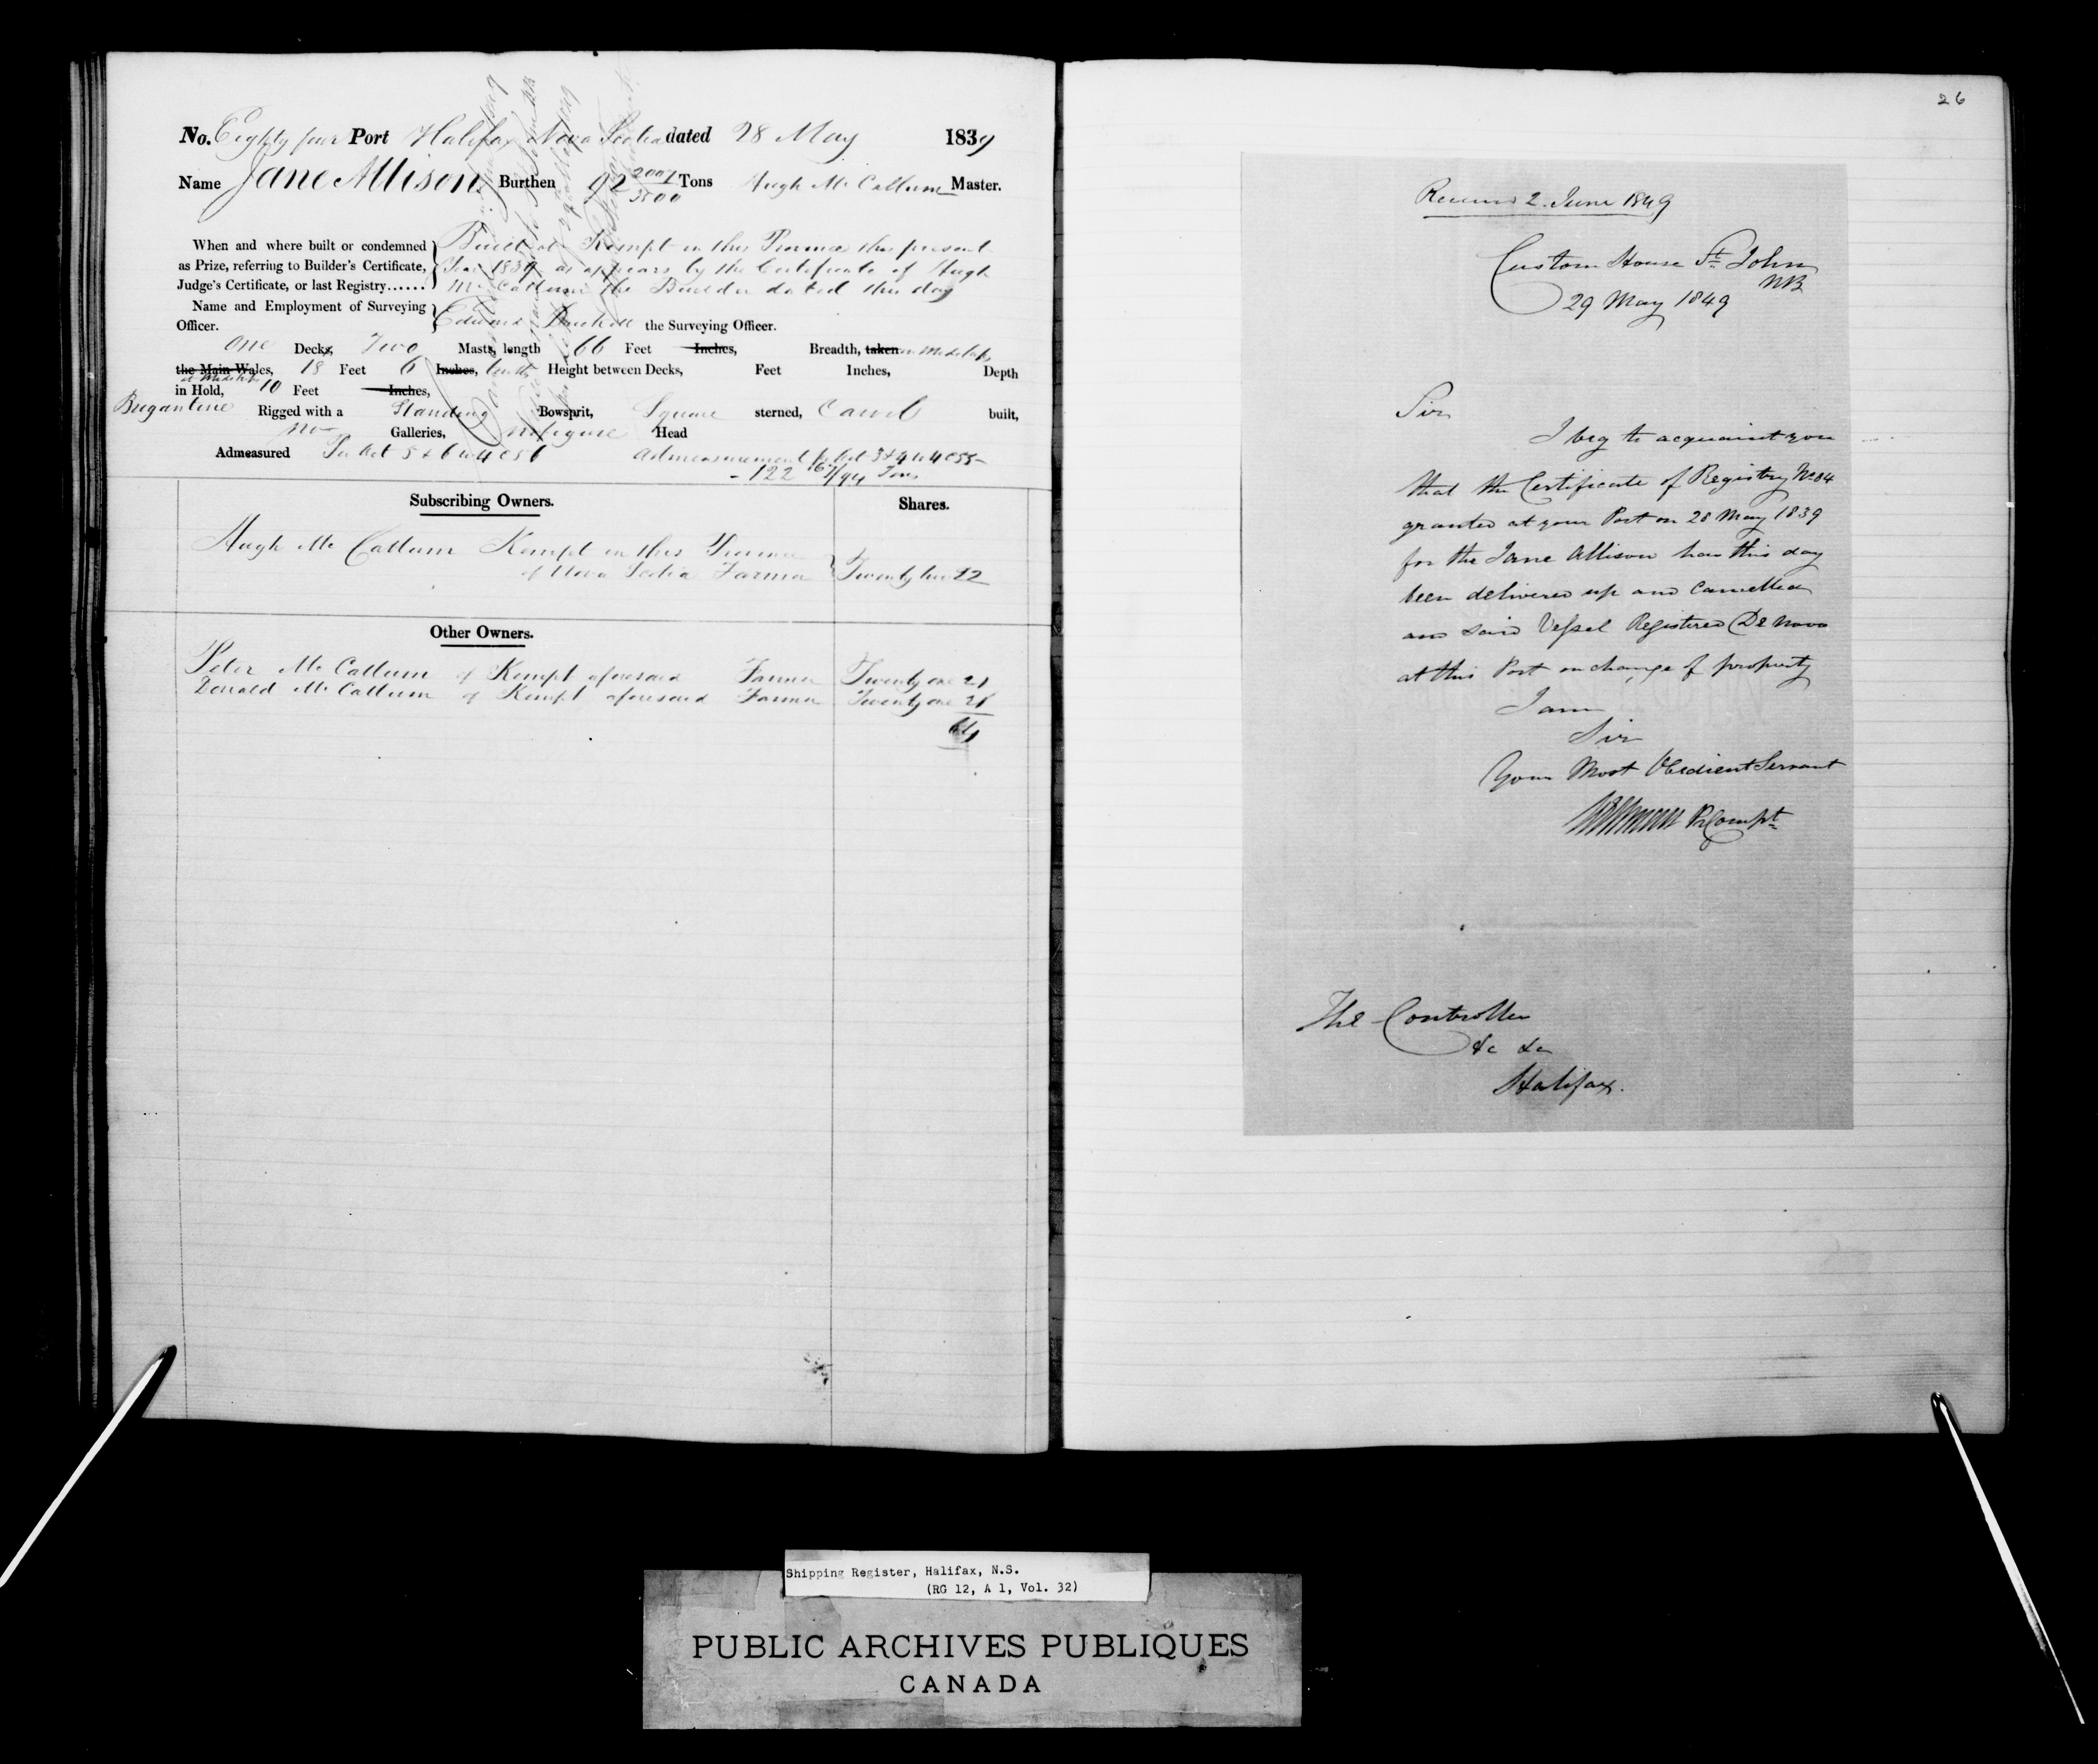 No. Eighty four Port Halifax Nova Scotia dated 28 May 1839
Name Jane Allison Burthen 92 2001/3500 Tons Hugh Mc Callum Master.
When and where built or condemned
as Prize, referring to Builder's Certificate,
Judge's Certificate, or last Registry......
Built at Kempt in this Province this present
Year 1839 as appears by the Certificate of Hugh
Mc Callum the Builder dated this day
Name and Employment of Surveying
Officer.
Edward the Surveying Officer.
One Decks, Two Masts, length 66 Feet Inches, Breadth, taken in Midships
the Main Wales, 18 Feet 6 Inches, tenths Height between Decks, Feet Inches, Depth
at Midships
in Hold, 10 Feet Inches,
Brigantine Rigged with a Standing Bowsprit, Square sterned, Carvel built,
no Galleries, no figure Head
Admeasured Per Act 5 & 6 W 4 C 56 Admeasurement pr Act 3 & 4 W 4 C 55
- 122 /94 Tons
Subscribing Owners. Shares.
Hugh Mc Callum Kempt in this Province
of Nova Scotia Farmer Twenty two 22
Other Owners.
Peter Mc Callum of Kempt aforesaid Farmer Twenty one 21
Donald Mc Callum of Kempt aforesaid Farmer Twenty one 21
64
26
Received 2 June 1849
Custom House St. John
NB
29 May 1849
Sir
I beg to acquaint you
that the Certificate of Registry No 84
granted at your Port on 28 May 1839
for the Jane Allison has this day
been delivered up and Cancelled
and said Vessel Registered De Novo
at this Port on change of property
I am
Sir
Your Most Obedient Servant
Compt
The Controller
&c &c
Halifax.
Shipping Register, Halifax, N.S.
(RG 12, A 1, Vol. 32)
PUBLIC ARCHIVES PUBLIQUES
CANADA